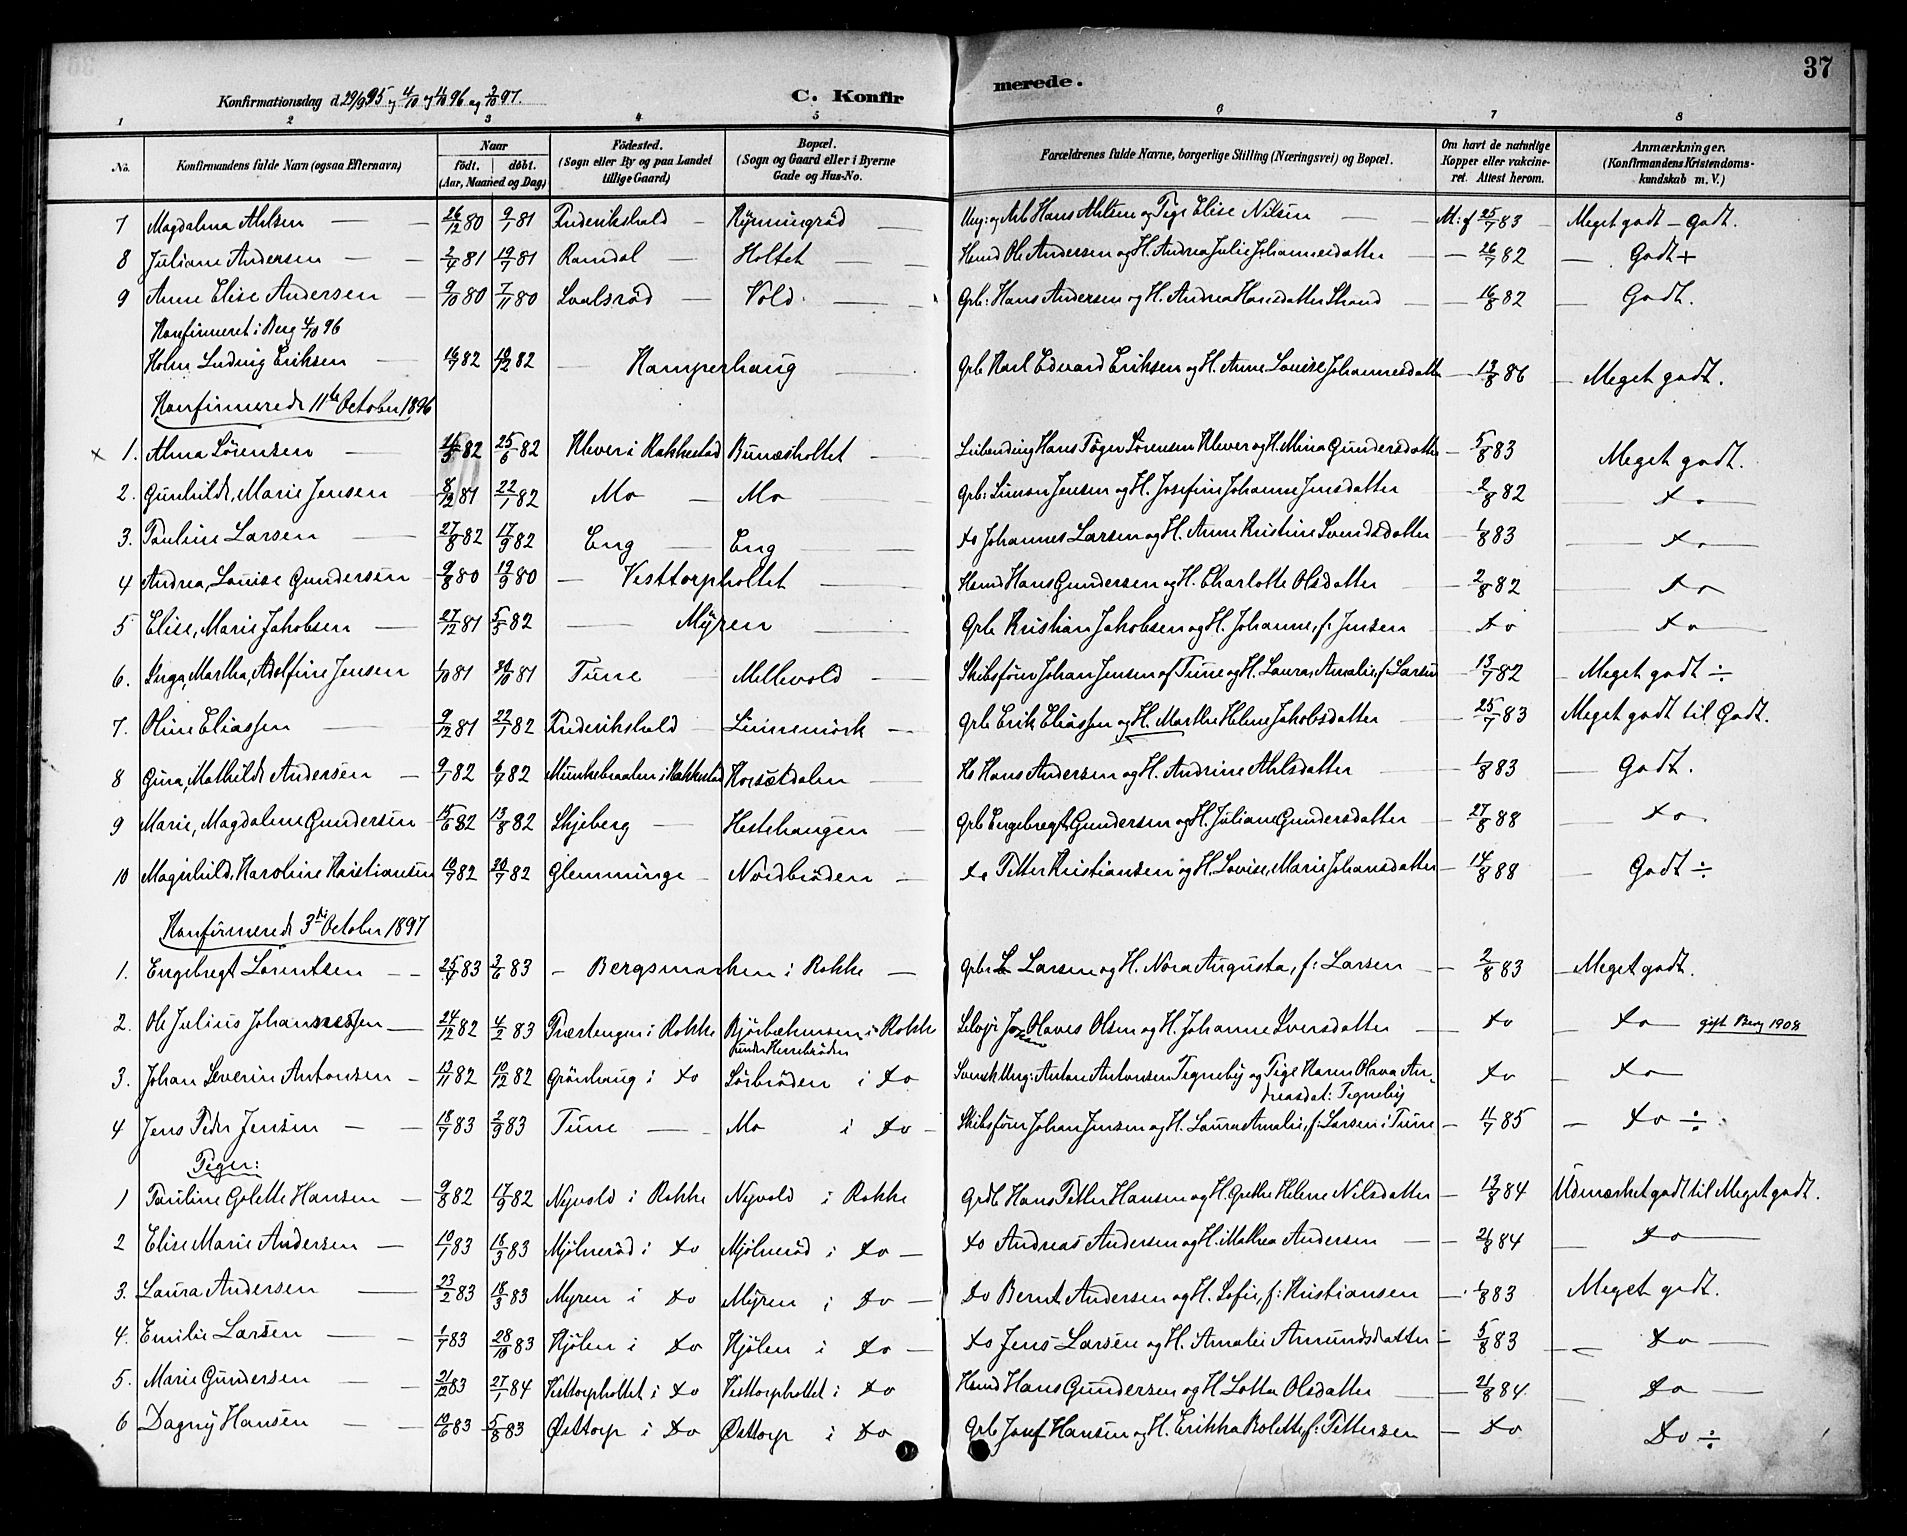 37
Konfirmationsdag d. 29/9 95 og 4/10 og 11/10 96 og 3/10 97.
C. Konfirmerede.
1 2 3 4 5 6 7 8
No. Konfirmandens fulde Navn (ogsaa Efternavn) Naar födt. döbt. (Aar, Maaned og Dag) Födested. (Sogn eller By og paa Landet tillige Gaard) Bopæl. (Sogn og Gaard eller i Byerne Gade og Hus-No. Forældrenes fulde Navne, borgerlige Stilling (Næringsvei) og Bopæl. Om havt de naturlige Kopper eller vakcineret. Attest herom. Anmærkninger. (Konfirmandens Kristendomskundskab m. V.)
7 Magdalena Ahlsen 26/12 80 9/1 81 Frederikshald Rynningröd Ung: og Arb Hans Ahlsen og Pige Elise Nilsen M: f 25/7 83 Meget godt – Godt.
8 Juliane Andersen 2/4 81 Ramdal Holtet Hsmd Ole Andersen og H. Andrea Julie Johannesdatter 26/7 82 Godt +
9 Anne Elise Andersen 9/10 80 7/11 80 Vold Grb: Hans Andersen og H. Andrea Hansdatter Strand 16/8 82 Godt.
Konfirmeret i Berg 4/10 96
Holm Ludvig Eriksen 16/7 82 Kamperhaug Grb Karl Edvard Eriksen og H. Anne Louise Johannesdatter 86 Meget godt.
Konfirmerede 11te October 1896
x 1. Alma Sörensen 82 25/6 82 Klever i Rakkestad Bunæsholtet Leilending Hans Töger Sörensen Klever og H. Mina Gundersdatter 5/8 83 Meget godt.
2. Gunhilde, Marie Jensen 8/12 81 22/1 82 Mo Mo Grb: Simon Jensen og H. Josefine Johanne Jensdatter 2/8 82 do
3. Pauline Larsen 27/8 82 17/9 82 Eng Eng do Johannes Larsen og H. Anne Kristine Svendsdatter 1/8 83 do
4 Andrea, Louise Gundersen 9/8 80 19/9 80 Vesttorpholtet Hsmd Hans Gundersen og H. Charlotte Olsdatter 2/8 82 do
5 Elise, Marie Jakobsen 27/12 81 5/3 82 Myren Grb Kristian Jakobsen og H. Johanne, f: Jensen do do
6. Inga, Martha, Adolfine Jensen 1/10 81 30/10 81 Tune Mellevold Skibsförer Johan Jensen af Tune og H. Laura, Amalie, f: Larsen 13/7 82 Meget godt ÷
7. Oline Eliassen 9/12 81 22/1 82 Frederikshald Linnemörk Grb Erik Eliassen og H. Marthe Helene Jakobsdatter 25/7 83 Meget godt til Godt.
8 Gina, Mathilde Andersen 9/1 82 6/7 82 Munkebraaten i Rakkestad Korsætdalen Hans Andersen og H. Andrine Ahlsdatter 1/8 83 Godt.
9 Marie, Magdalene Gundersen 15/6 82 13/8 82 Skjeberg Hestehaugen Grb Engebregt Gundersen og H. Juliane Gundersdatter 27/8 88 do
10 Magnhild, Karoline Kristiansen 10/7 82 30/7 82 Glemminge Nordbröden do Petter Kristiansen og H. Lovise, Marie Johansdatter 14/8 88 Godt ÷
Konfirmerede 3die October 1897
1. Engebregt Lorentsen 25/4 83 3/6 83 Bergsmarken i Rokke Grbr L Larsen og H. Nora Augusta, f: Larsen 2/8 83 Meget godt.
2. Ole Julius Johannessen 24/12 82 4/2 83 Præstengen i Rokke Björbækmosen i Rokke
under Herrebröden
Selvejr Johan Olaves Olsen og H. Johanne Iversdatter do do gift Berg 1908
3. Johan Severin Antonsen 13/11 82 10/12 82 Grönhaug i do Sörbröden i do Svensk Ung: Anton Antonsen Tegneby og Pige Karen Olava Andreasdat: Tegneby do do
4 Jens Peder Jensen 18/7 83 2/9 83 Tune Mo i do Skibsförer Johan Jensen og H. Laura Amalie, f: Larsen i Tune 11/7 85 do ÷
Piger:
1 Pauline Golette Hansen 9/8 82 17/9 82 Nyvold i Rokke Nyvold i Rokke Grdb Hans Petter Hansen og H. Grethe Helene Nilsdatter 13/8 84 Udmærket godt til Meget godt.
2 Elise Marie Andersen 10/1 83 18/3 83 Mjölneröd i do Mjölneröd i do do Andreas Andersen og H. Mathea Andersen 21/8 84 do
3. Laura Andersen 23/2 83 18/3 83 Myren i do Myren i do do Bernt Andersen og H. Sofie, f: Kristiansen 1/8 83 Meget godt.
4. Emilie Larsen 1/7 83 28/10 83 Kjölen i do Kjölen i do do Jens Larsen og H. Amalie Amundsdatter 5/8 83 do
5. Marie Gundersen 21/12 83 27/1 84 Vesttorpholtet i do Vesttorpholtet i do Hsmd Hans Gundersen og H Lotta Olsdatter 21/8 84. do
6 Dagny Hansen 10/6 83 5/8 83 Østtorp i do Østtorp i do Grb Josef Hansen og H. Erikka Bolette f: Pettersen do Do ÷